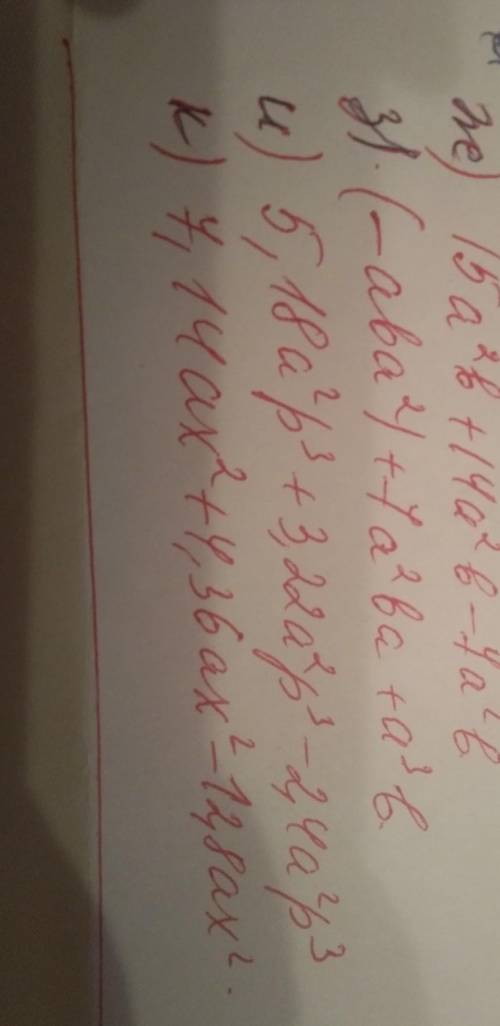 ж) 15a²b + 14a²b - 7a²b
з) (-aba²) + 7a²ba + a³b.
и) 5,18a²p³ + 3,22a²p³ - 2,4a²p³
к) 7,14ax² + 4,36ax² - 12,8ax².